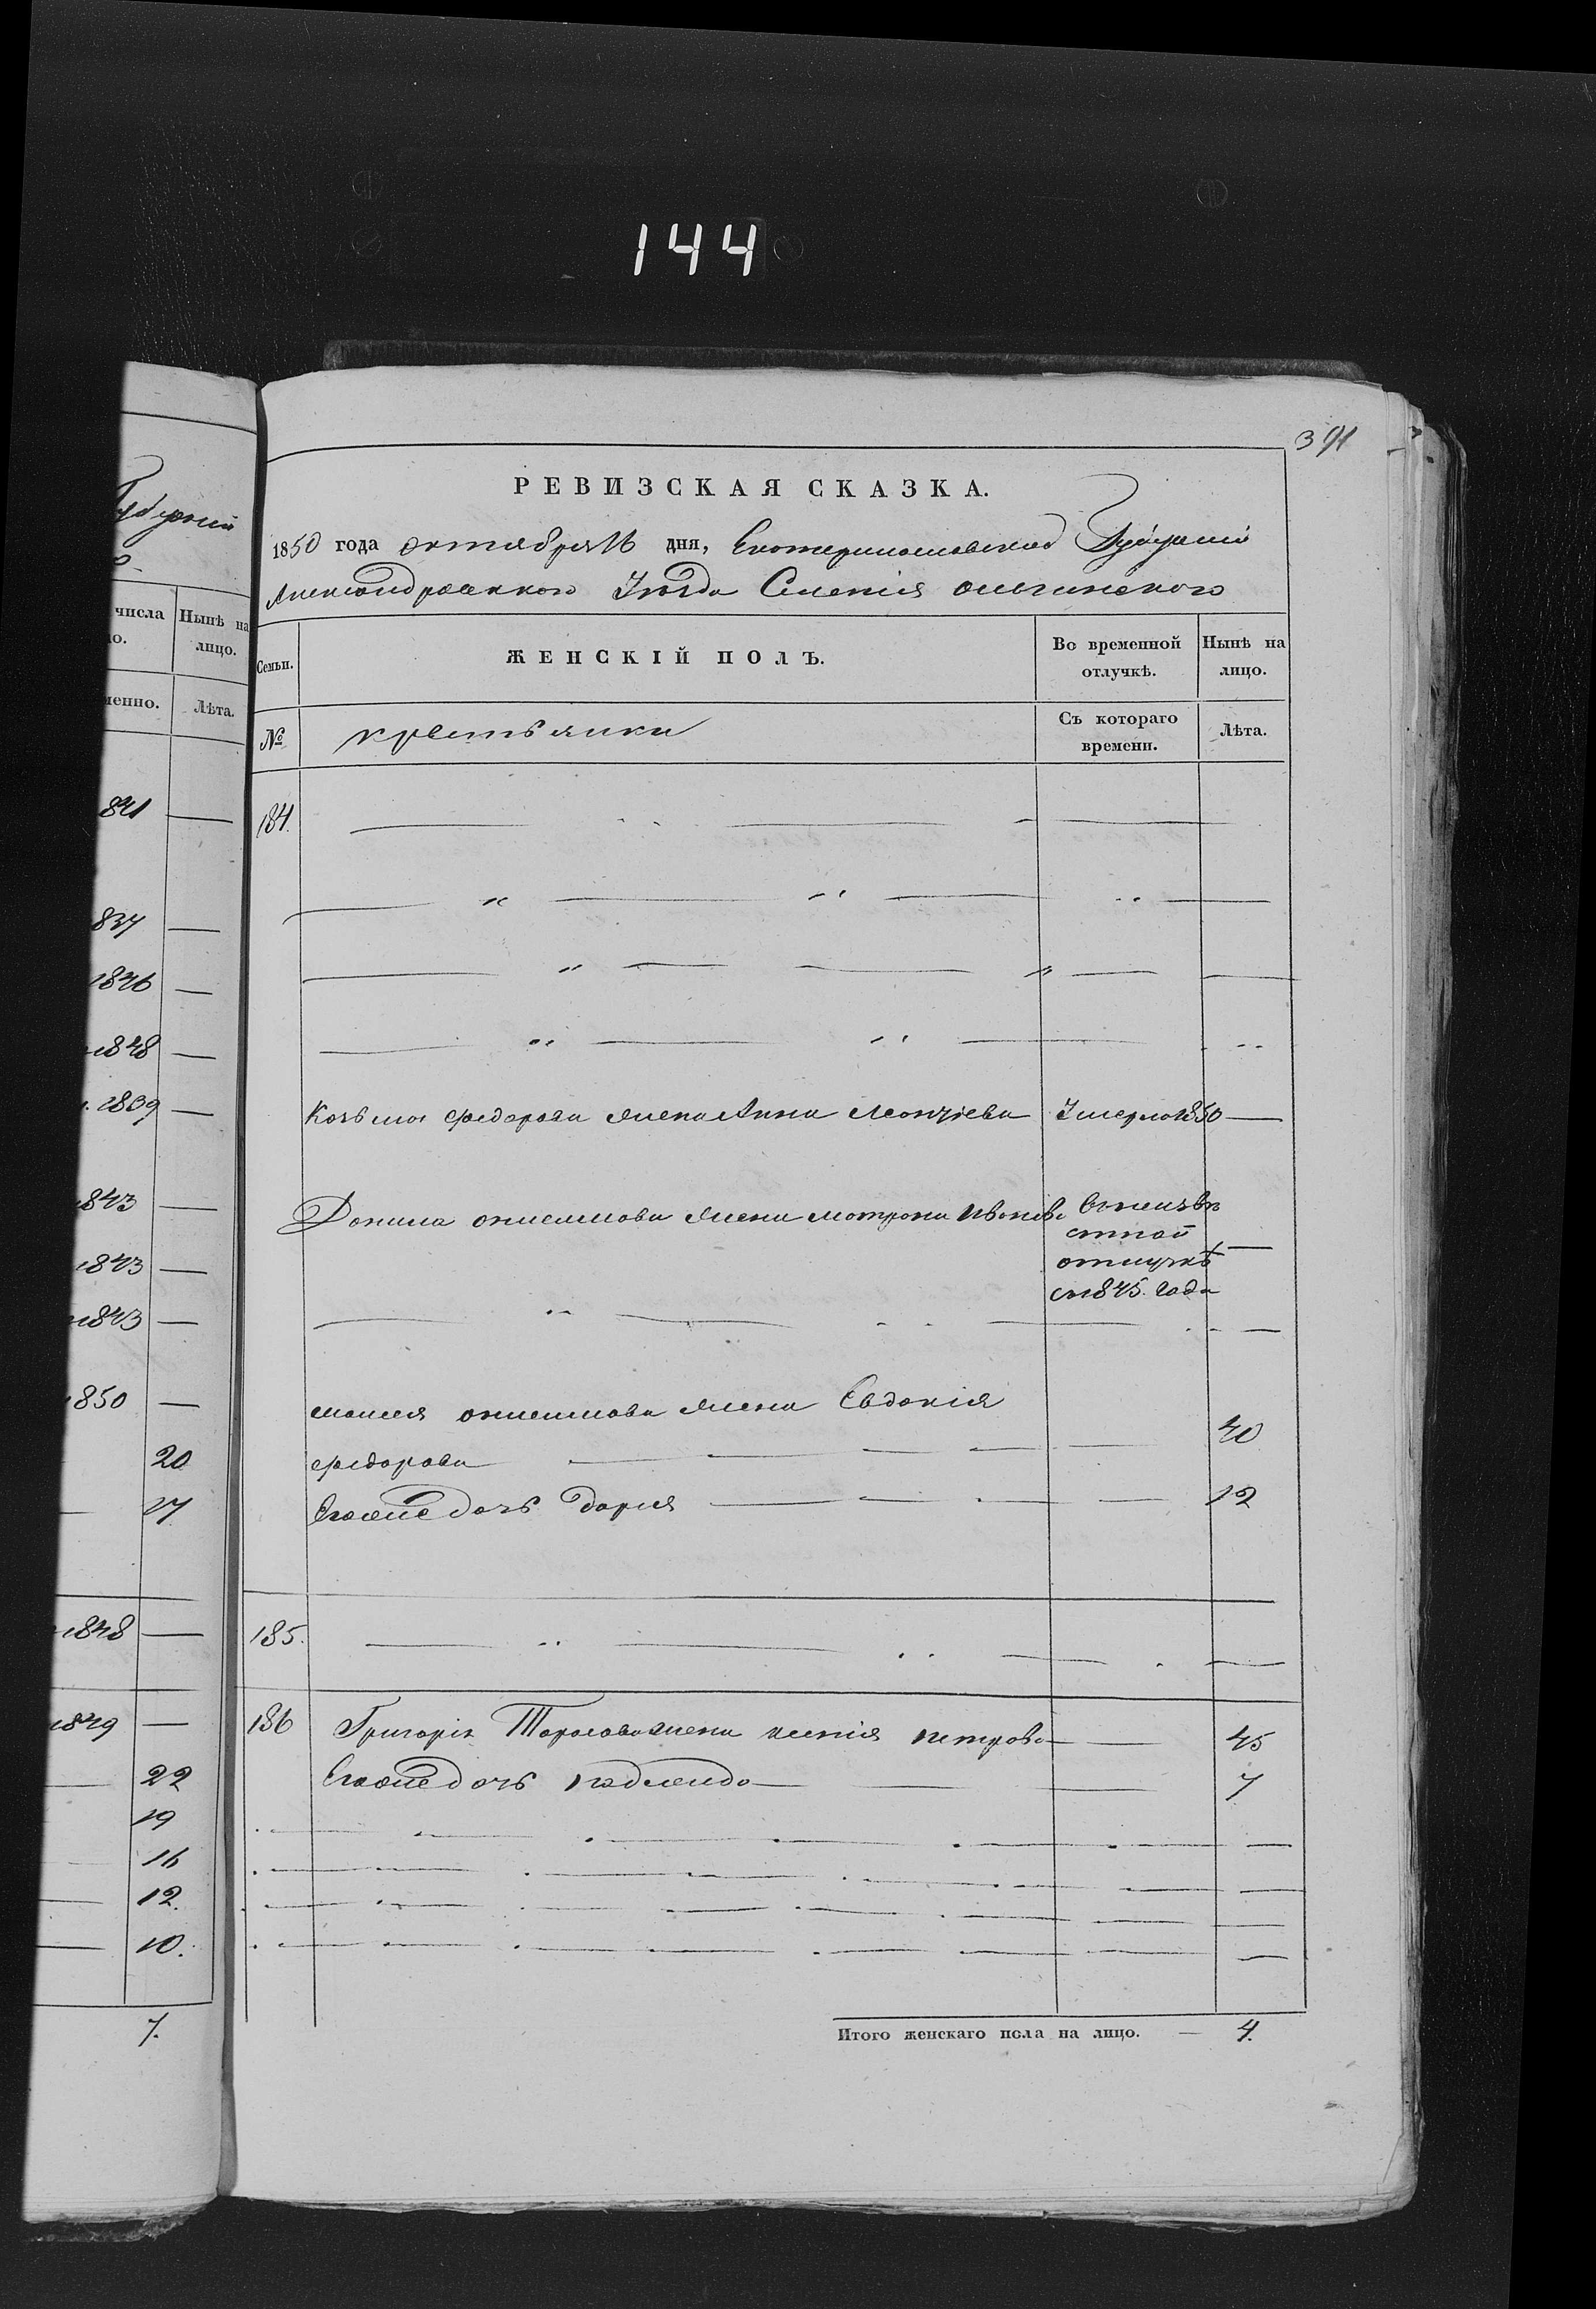 144
391
РЕВИЗСКАЯ СКАЗКА.
1850 года октября 16 дня, Екатеринославской Губернии
Александровского Уѣзда Селенія Ольгинского
Семьи.
ЖЕНСКІЙ ПОЛЪ.
Во временной отлучкѣ.
Нынѣ на лицо.
№
крестьянки
Съ котораго времени.
Лѣта.
184.
Козьмы Федорова жена Анна Леонтіева Умерла 1850 —
Данила Анисимова жена Мотрона Иванова Въ неизвѣ
стной
отлучкѣ —
съ 1845. года
Моисея Анисимова жена Евдокія
Федорова 40
Егоже дочь Дарья 12
185.
186 Григорія Тарасова жена Ксенія Петрова 45
Егоже дочь 7
Итого женскаго пола на лицо. — 4.
Губерніи
числа
ло.
Нынѣ на
лицо.
менно.
Лѣта.
841 —
837 —
1846 —
1848 —
1839 —
1843 —
1843 —
1843 —
1850 —
20
17
1848 —
1849 —
22
19
16
12.
10.
7.